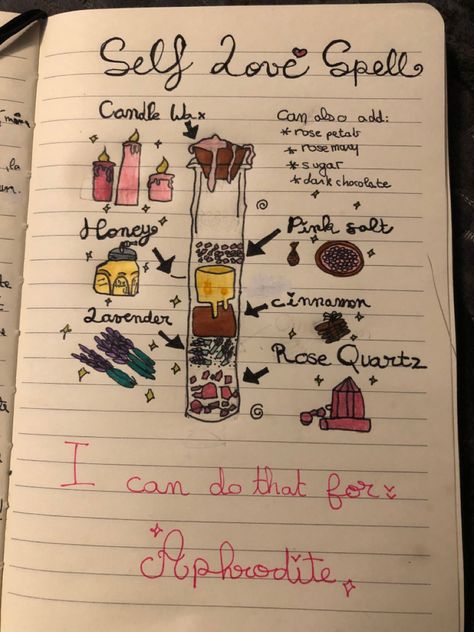 Self Love Spell
Candle Wax
Can also add:
* rose petals
* rosemary
* sugar
* dark chocolate
Honey
Pink salt
Cinnamon
Lavender
Rose Quartz
I can do that for
Aphrodite